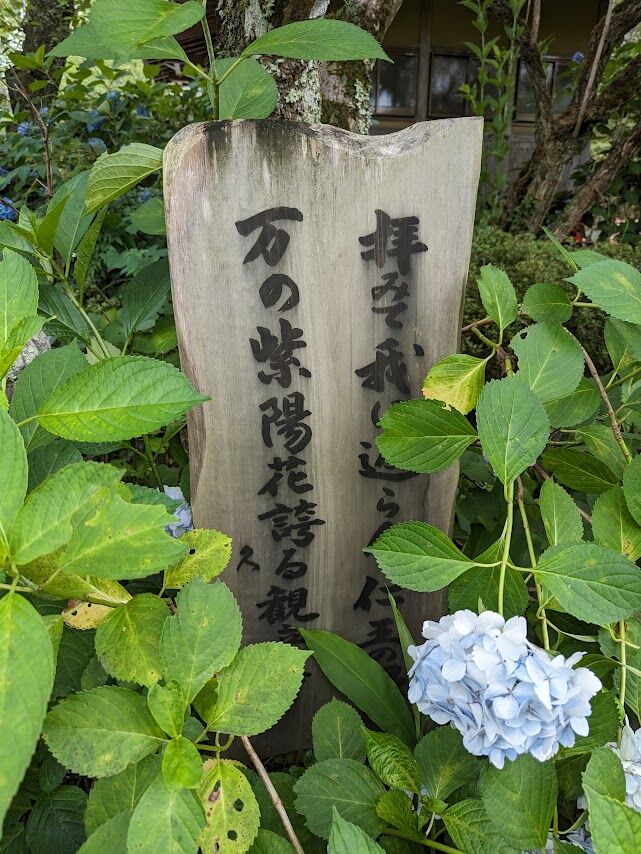 拝みて我 らん仁王
万の紫陽花誇る観
久